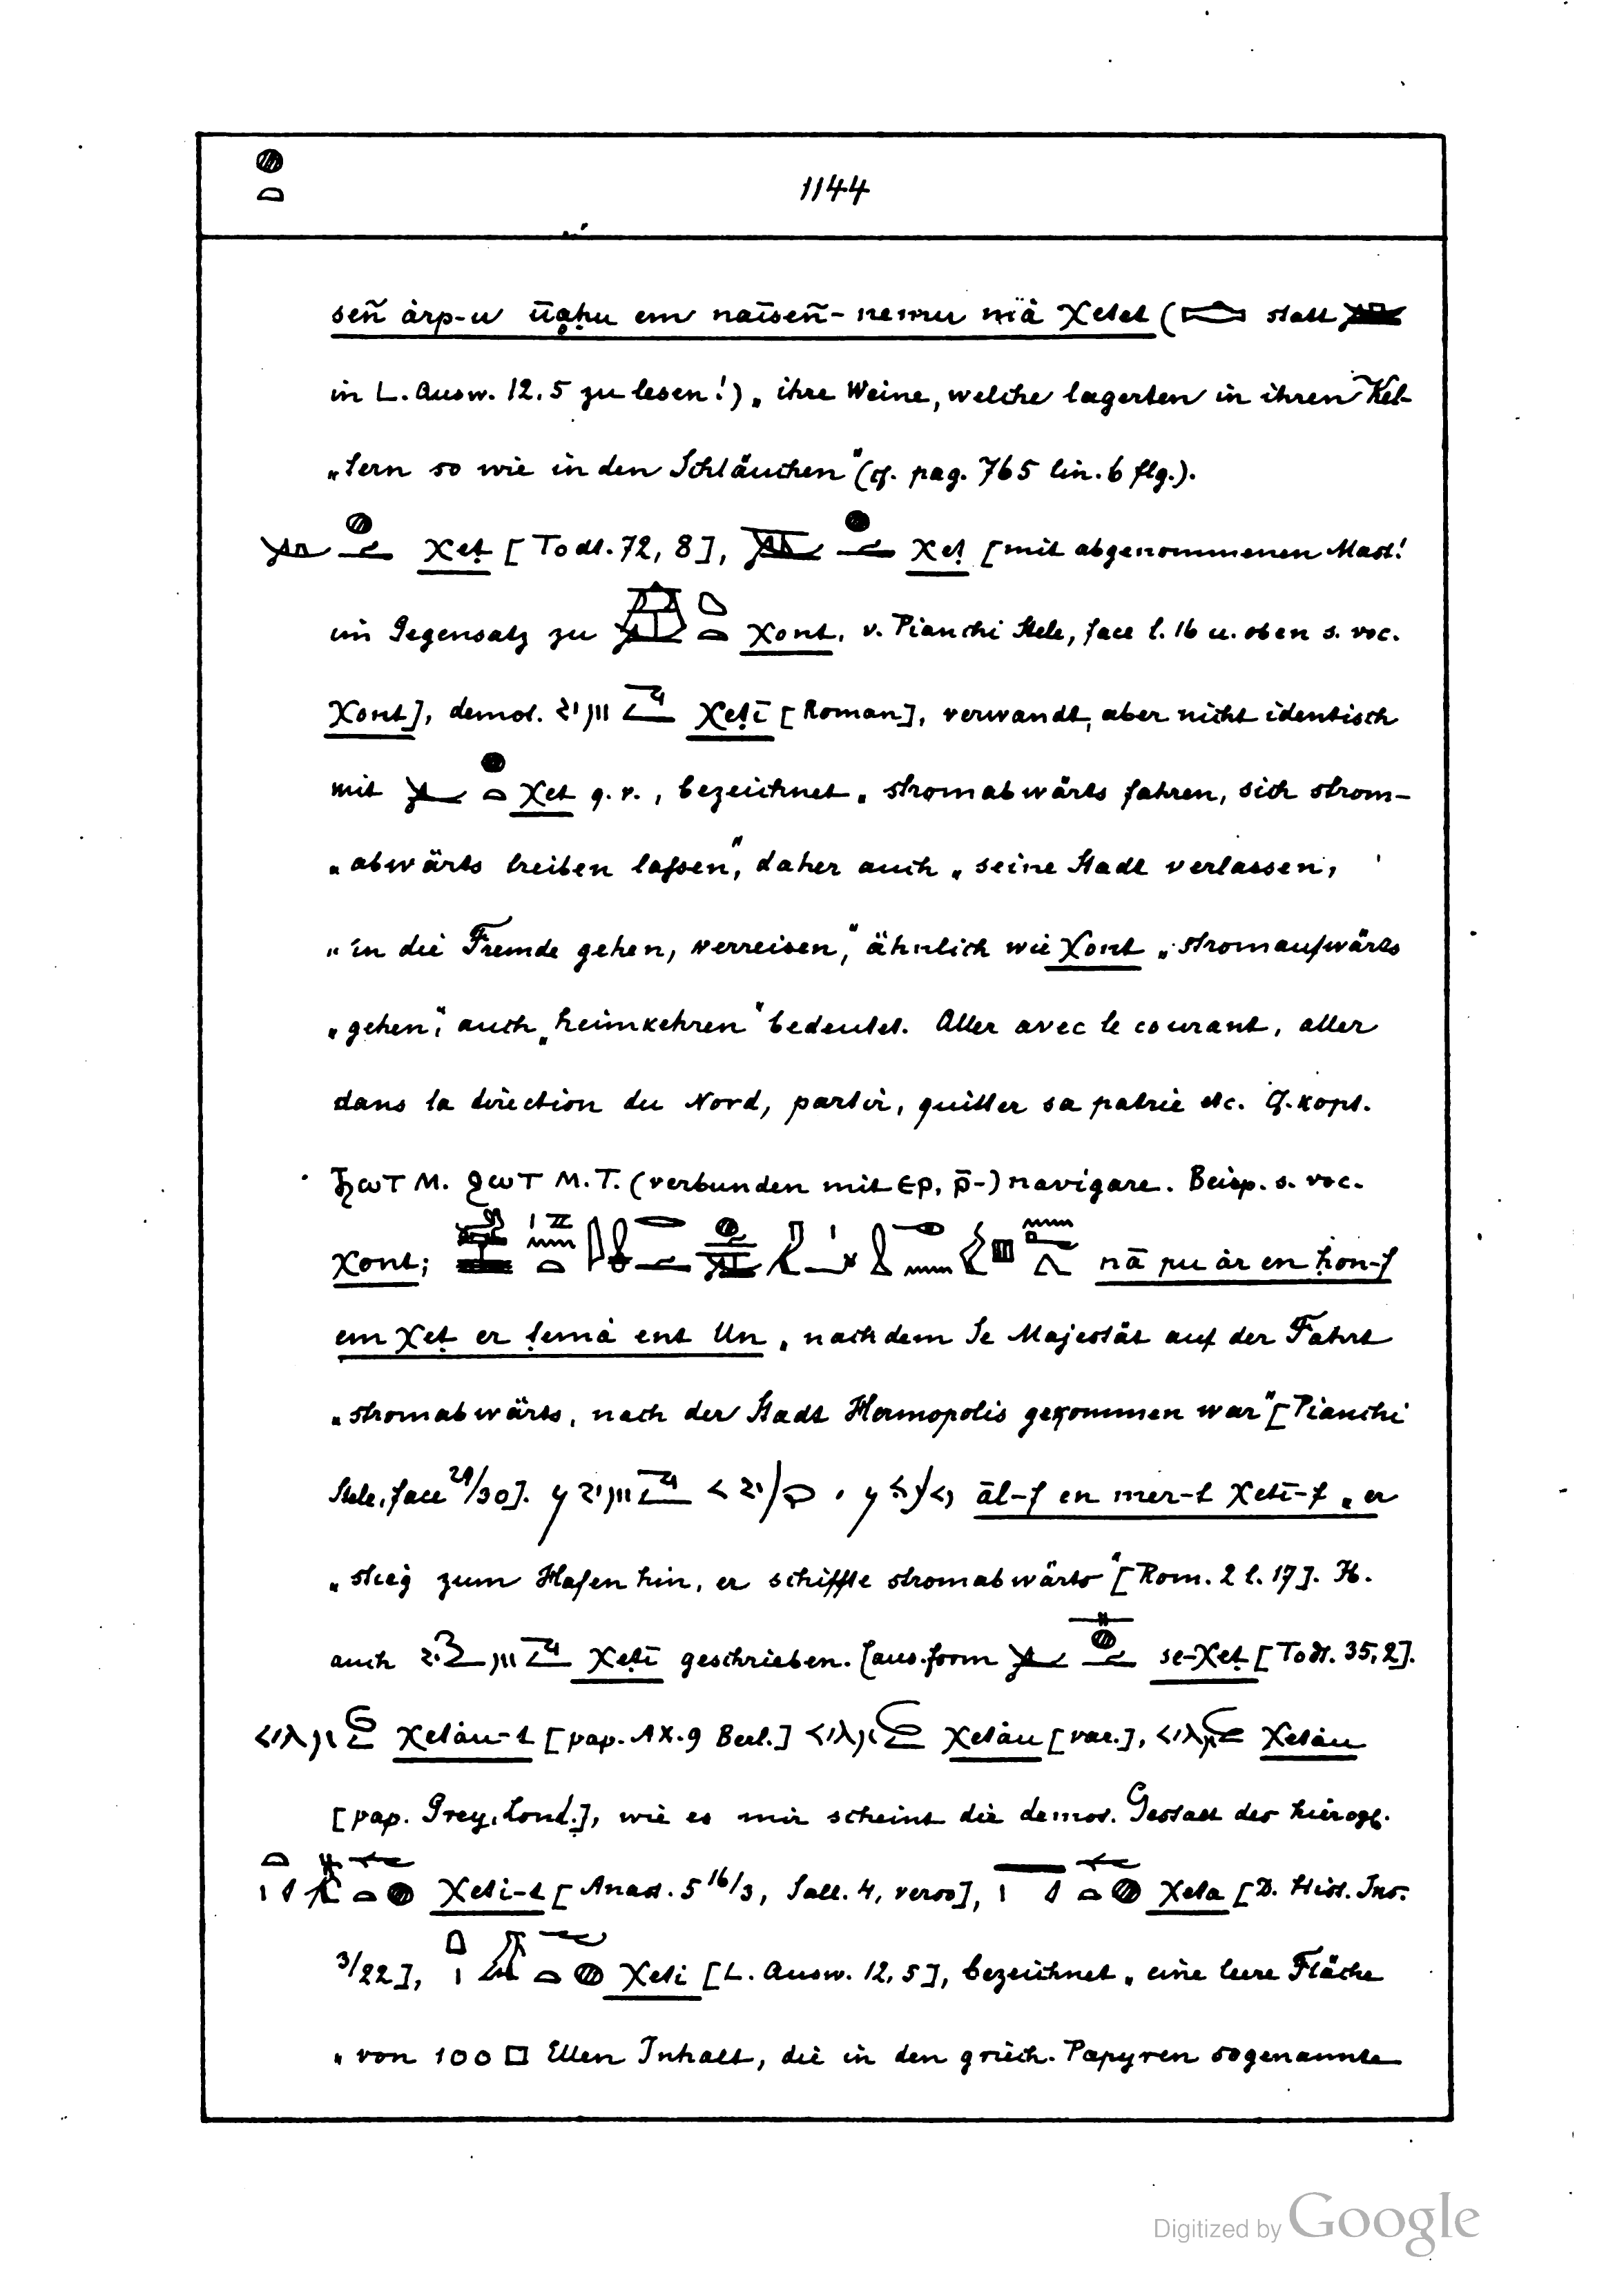 1144
señ àrp-u ūaḥu em naīseñ-nemu mà χetet ( statt
in L. Ausw. 12.5 zu lesen!) „ihre Weine, welche lagerten in ihren Kel-
„tern so wie in den Schläuchen" (cf. pag. 765 lin. 6 flg.).
χeṭ [Todt. 72, 8], χeṭ [mit abgenommenen Mast!
im Gegensatz zu χont, v. Pianchi Stele, face l. 16 u. oben s. voc.
χont], demot. χeṭī [Roman], verwandt, aber nicht identisch
mit χet q. v., bezeichnet „stromabwärts fahren, sich strom-
„abwärts treiben lassen", daher auch „seine Stadt verlassen,
„in die Fremde gehen, verreisen", ähnlich wie χont „stromaufwärts
„gehen", auch „heimkehren" bedeutet. Aller avec le courant, aller
dans la direction du Nord, partir, quitter sa patrie etc. Cf. kopt.
ϧⲱⲧ M. ϩⲱⲧ M. T. (verbunden mit ⲉⲣ, ⲣ̄-) navigare. Beisp. s. voc.
χont; nā pu àr en ḥon-f
em χeṭ er ṭemà ent Un „nachdem Se Majestät auf der Fahrt
„stromabwärts, nach der Stadt Hermopolis gekommen war" [Pianchi
Stele, face 29/30]. āl-f en mer-t χetī-f „er
„stieg zum Hafen hin, er schiffte stromabwärts" [Rom. 2 l. 17]. H.
auch χeṭī geschrieben. Caus. form se-χeṭ [Todt. 35, 2].
χetàu-t [pap. AX. 9 Berl.] χetàu [var.], χetàu
[pap. Grey, Lond.], wie es mir scheint die demot. Gestalt des hierogl.
χeti-t [Anast. 5 16/3, Sall. 4, verso], χeta [D. Hist. Ins.
3/22], χeti [L. Ausw. 12, 5], bezeichnet „eine leere Fläche
„von 100 □ Ellen Inhalt, die in den griech. Papyren sogenannte
Digitized by Google